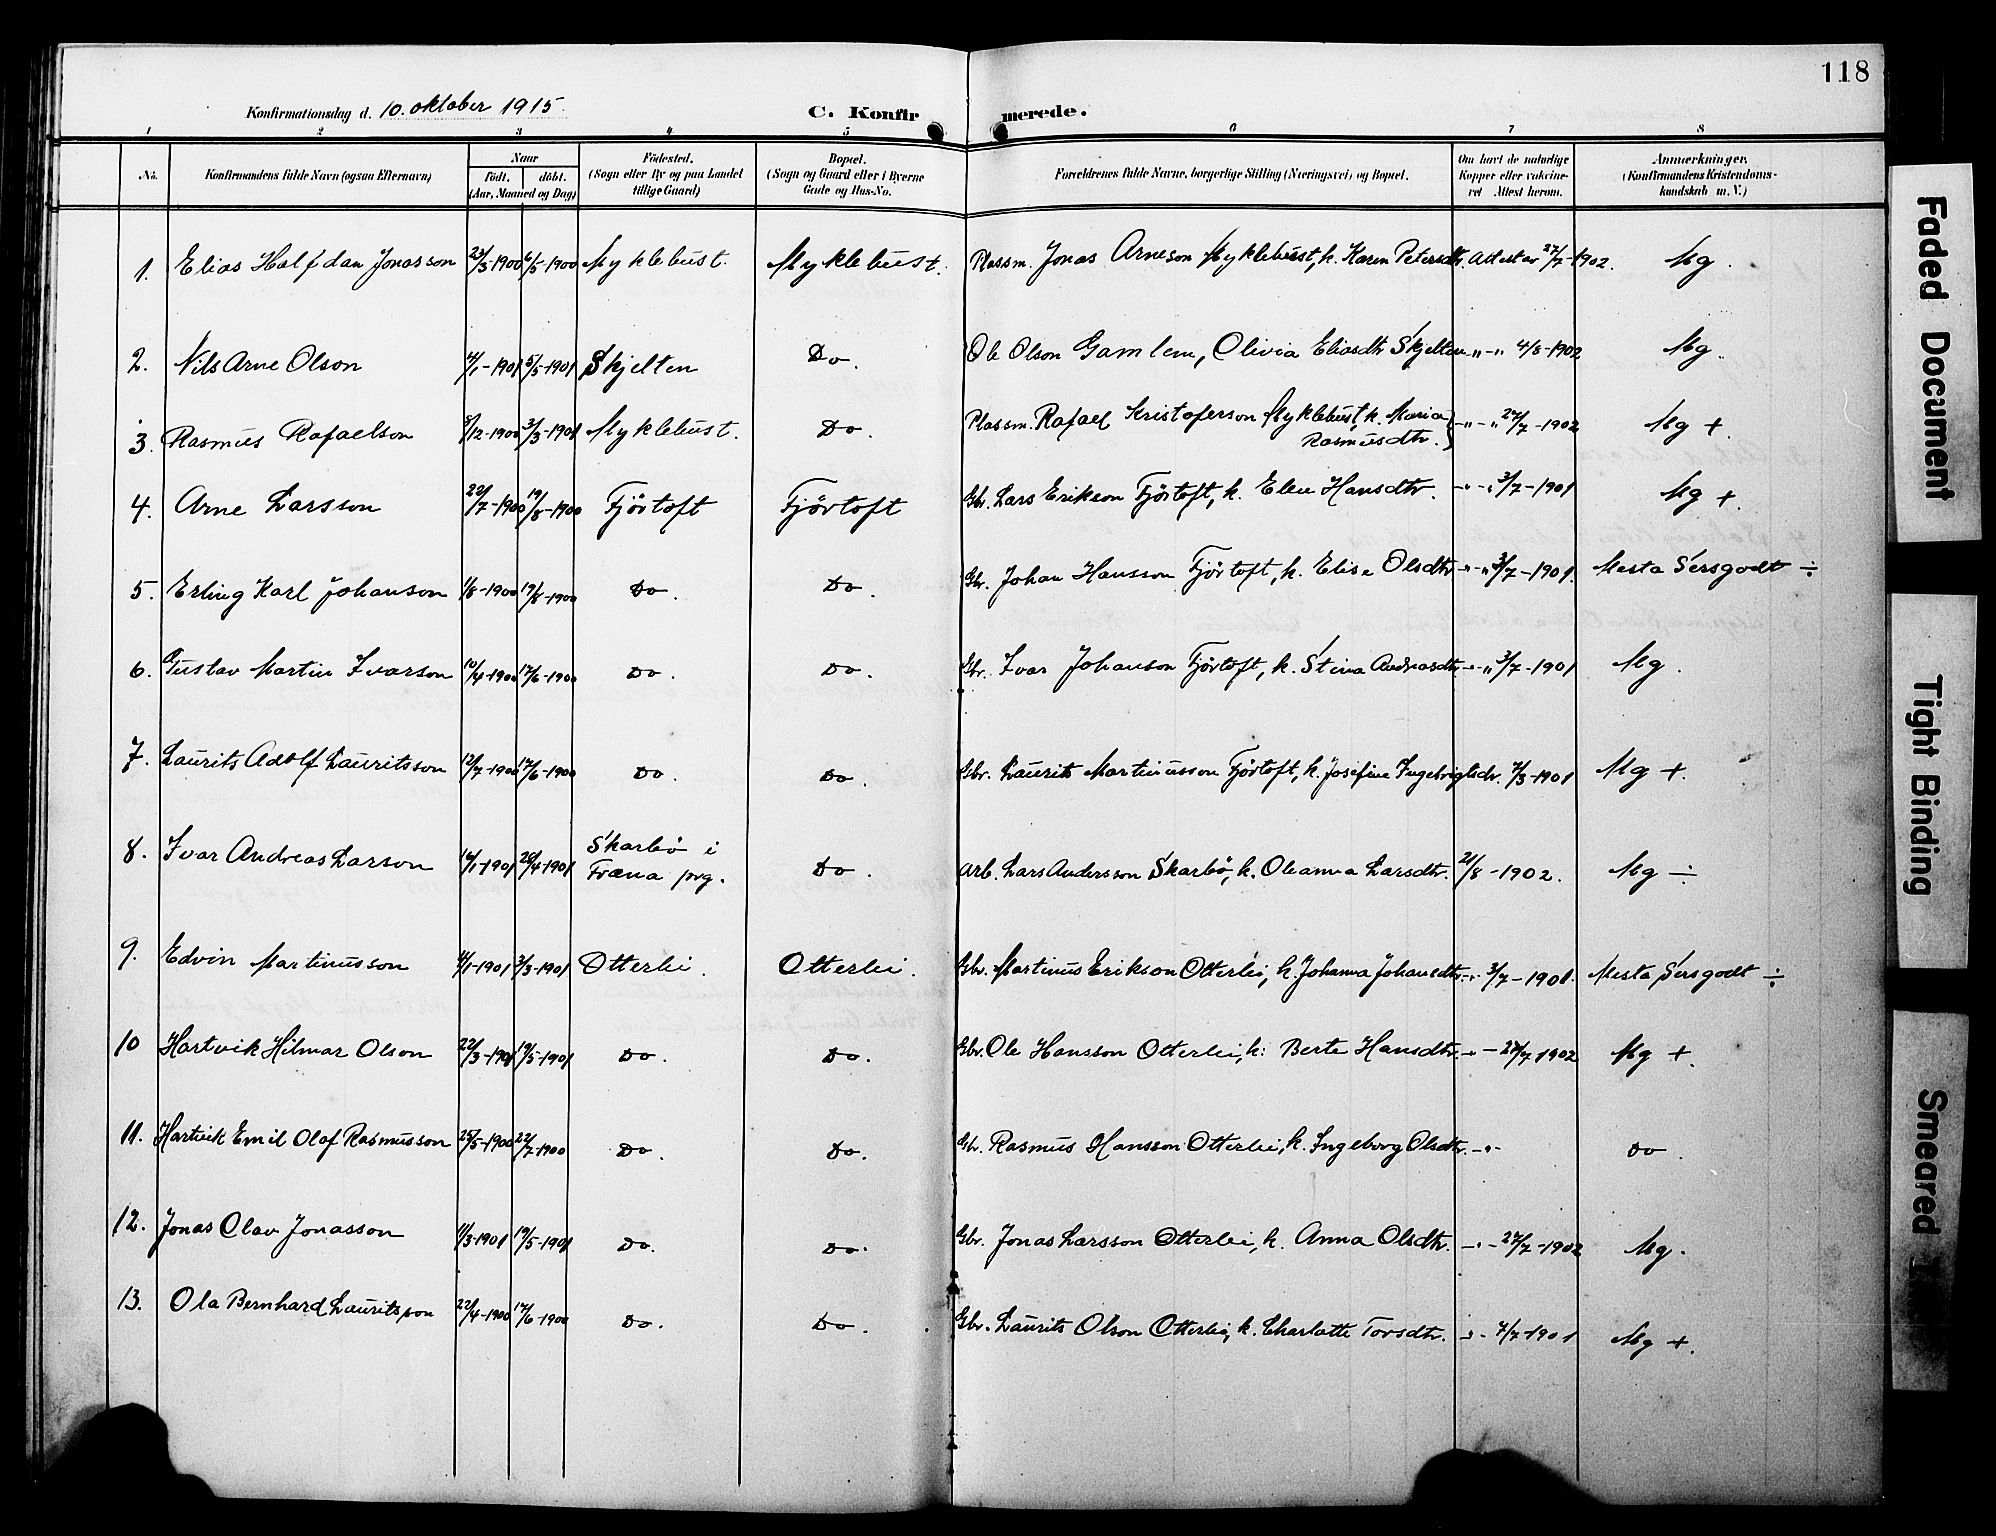 118
Konfirmationsdag d. 10. oktober 1915. C. Konfirmerede.
1 2 3 4 5 6 7 8
No. Konfirmandens fulde Navn (ogsaa Efternavn) Naar Födt. döbt. (Aar, Maaned og Dag) Födested. (Sogn eller By og paa Landet tillige Gaard) Bopæl. (Sogn og Gaard eller i Byerne Gade og Hus-No. Forældrenes fulde Navne, borgerlige Stilling (Næringsvei) og Bopæl. Om havt de naturlige Kopper eller vakcineret Attest herom. Anmærkninger. (Konfirmandens Kristendomskundskab m. V.)
1. Elias Halfdan Jonasson 23/3-1900 6/5-1900 Myklebust. Myklebust. Plassm. Jonas Arneson Myklebust, k. Karen Petersdtr. Attest av 27/7-1902. Mg.
2. Nils Arne Olson 4/1-1901 5/5-1901 Skjelten Do. Ole Olson Gamlem, Olivia Eliasdtr Skjelten -"-" 4/8-1902 Mg.
3. Rasmus Rafaelson /12-1900 3/3-1901 Myklebust. Do. Plassm. Rafael Kristoferson Myklebust, k. Maria Rasmusdtr. -"-" 27/7-1902 Mg +.
4. Arne Larsson 22/7-1900 19/8-1900 Fjörtoft Fjörtoft Gbr. Lars Erikson Fjörtoft, k. Elen Hansdtr. -"-" 3/7-1901 Mg +.
5. Erling Karl Johanson 1/8-1900 19/8-1900 Do. Do. Gbr. Johan Hansson Fjörtoft, k. Elise Olsdtr -"-" 3/7-1901. Mesta Sersgodt ÷
6. Gustav Martin Ivarson 10/4-1900 17/6-1900 Do. Do. Gbr. Ivar Johanson Fjörtoft, k. Stina Andreasdtr -"-" 3/7-1901 Mg.
7. Laurits Adolf Lauritsson 12/7-1900 17/6-1900 Do. Do. Gbr. Laurits Martinusson Fjörtoft, k. Josefine Ingebrigtsdr. 7/3-1901 Mg +.
8. Ivar Andreas Larson 14/1-1901 28/4-1901 Skarbö i Fræna prg. Do. Arb. Lars Andersson Skarbö, k. Oleanna Larsdtr. 21/8-1902. Mg ÷
9. Edvin Martinusson 4/1-1901 3/3-1901 Otterlei. Otterlei. Gbr. Martinus Erikson Otterlei, k. Johanna Johansdtr. -"- 3/7-1901. Mesta Sersgodt ÷
10 Hartvik Hilmar Olson 22/3-1901 19/5-1901 Do. Do. Gbr. Ole Hansson Otterlei, k: Berte Hansdtr. -"- 27/7 1902 Mg +.
11. Hartvik Emil Olaf Rasmusson 25/5-1900 22/7-1900 Do. Do. Gbr. Rasmus Hansson Otterlei, k. Ingeborg Olsdtr. -"- Do.
12. Jonas Olav Jonasson 11/3-1901 19/5-1901 Do. Do. Gbr. Jonas Larsson Otterlei, k. Anna Olsdtr. -"- 27/7-1902 Mg.
13. Ola Bernhard Lauritsson 22/4-1900 17/6-1900 Do. Do. Gbr. Laurits Olson Otterlei, k. Charlotte Torsdtr. -"- 7/7-1901 Mg +.
Faded Document
Tight Binding
Smeared